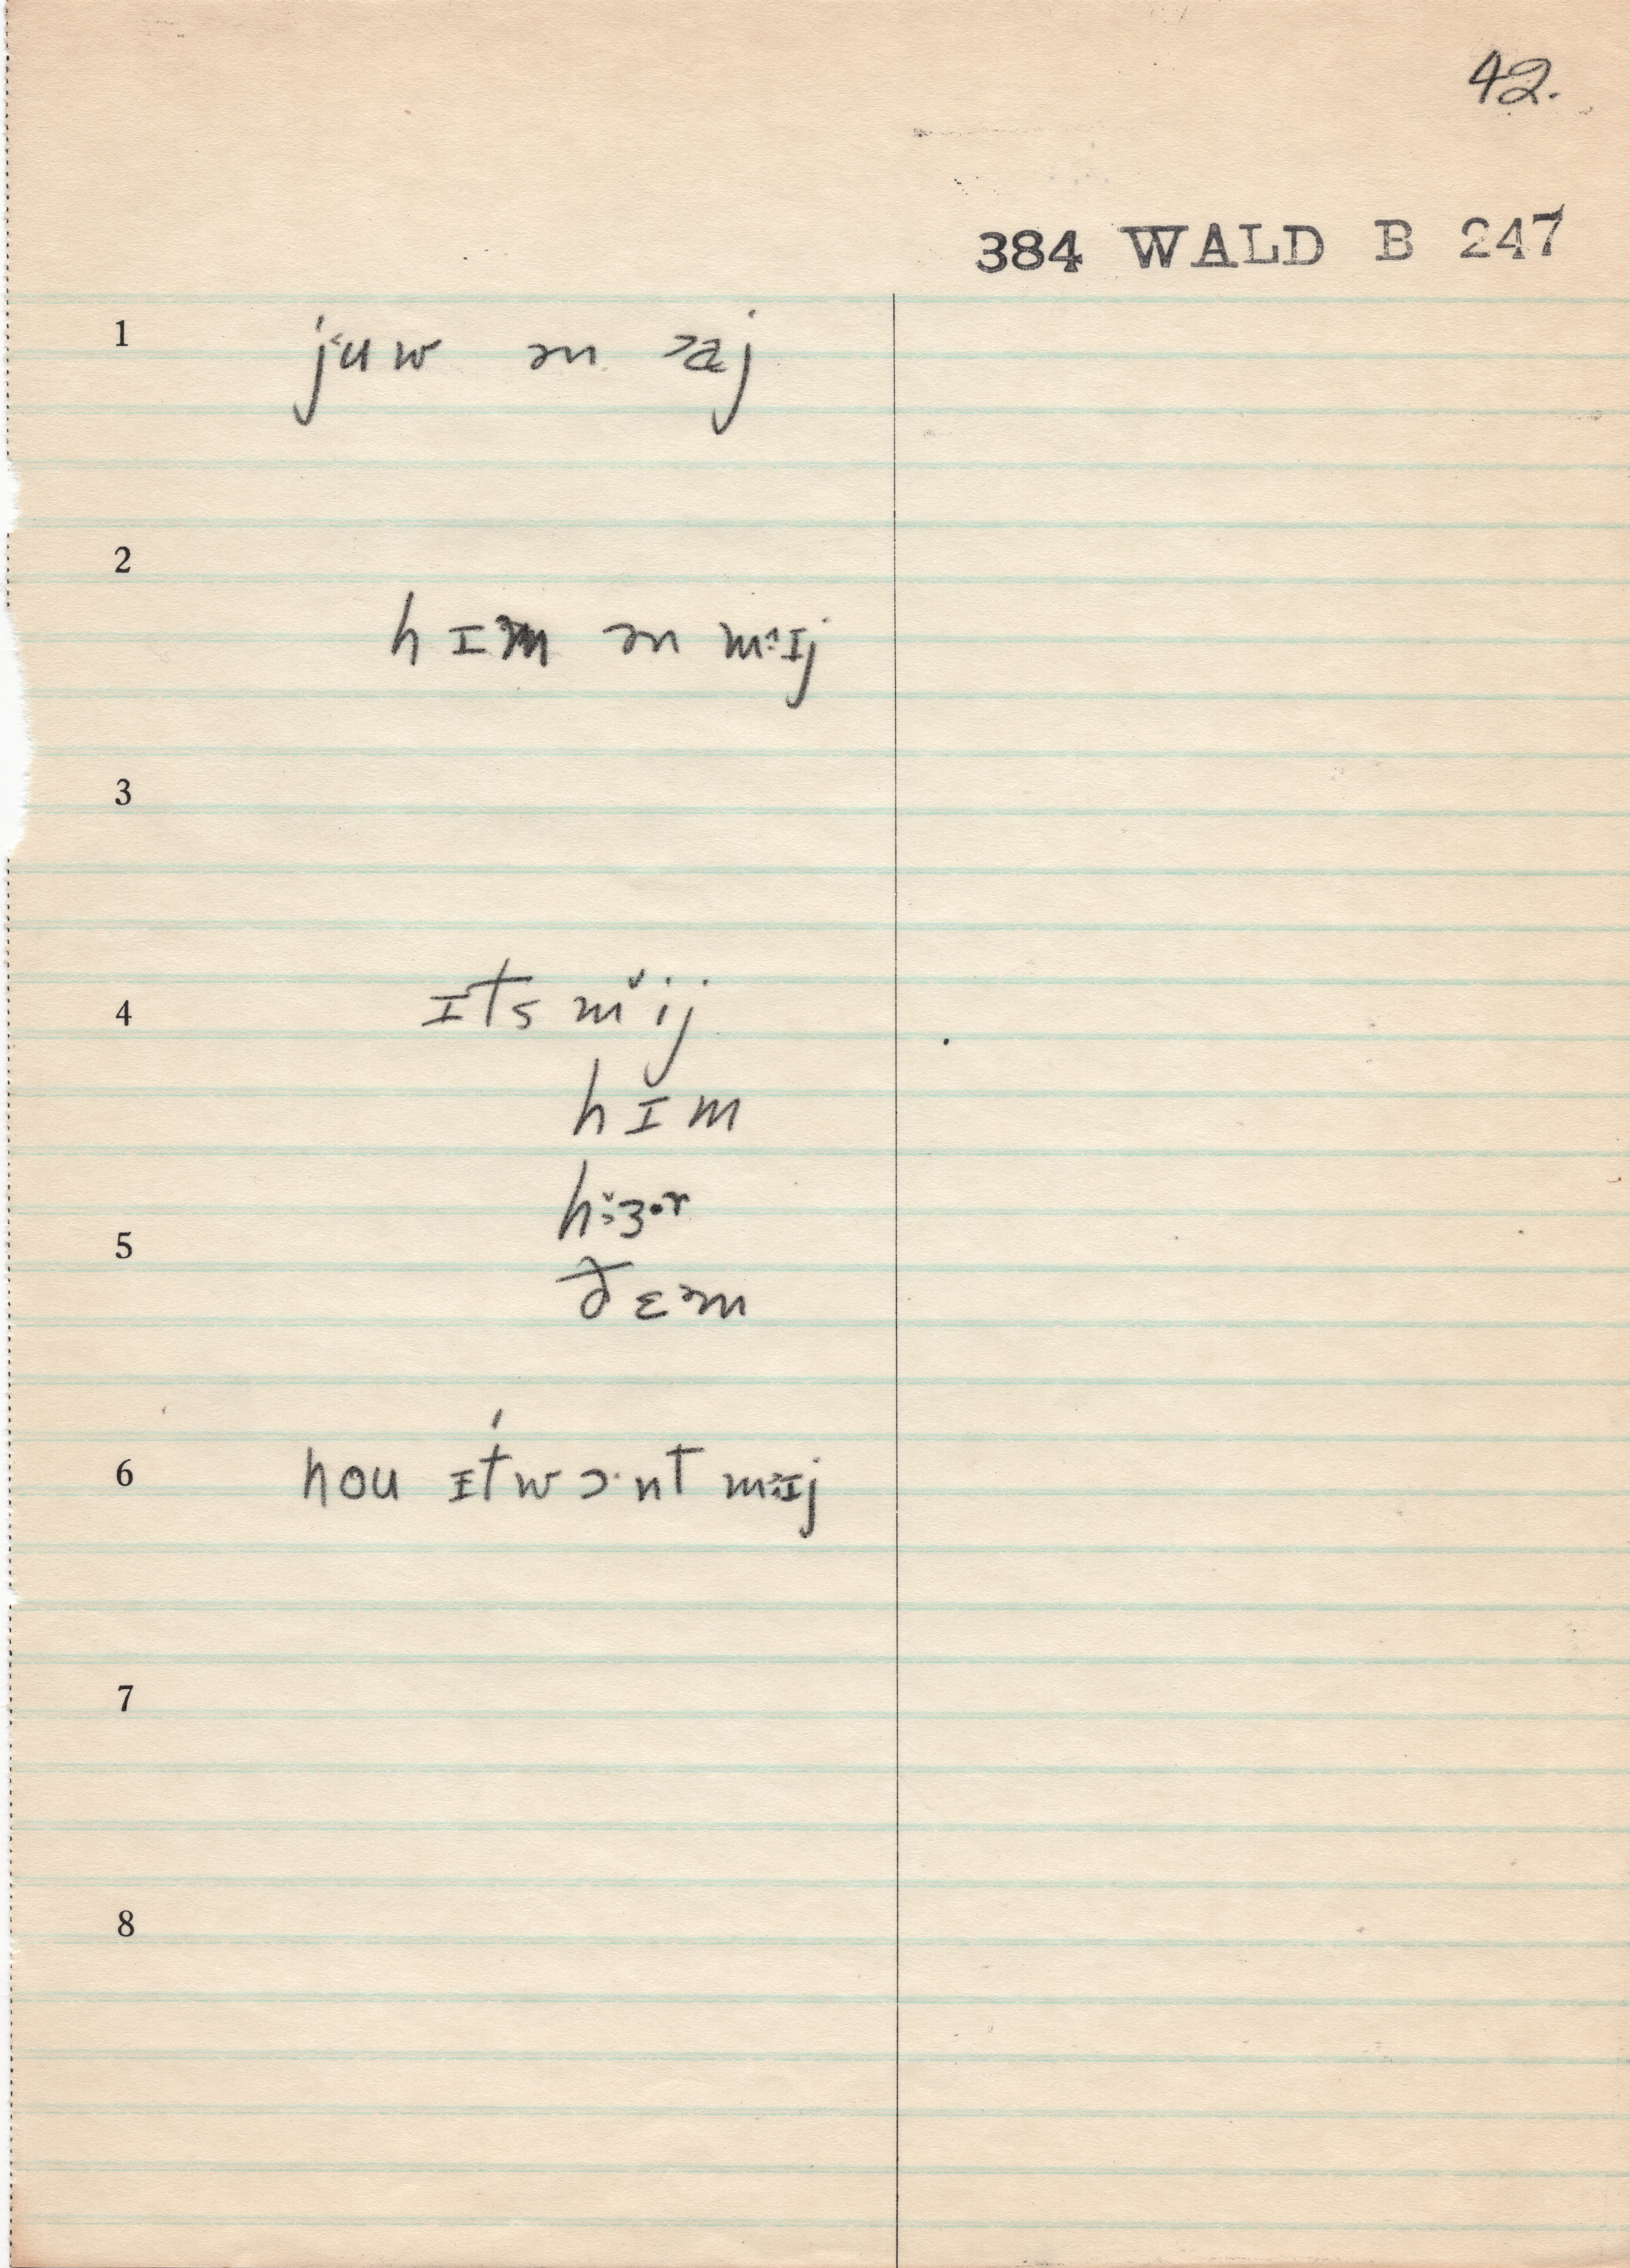 42.
384 WALD B 247
1 jʻuw ən ˃aj
2 hɪm ən mᵊɪj
3
4 ɪts mˇij
hɪm
5 h˔ɜ·r
ðɛᵊm
6 nou ɪt wɔ·nt mᵊɪj
7
8